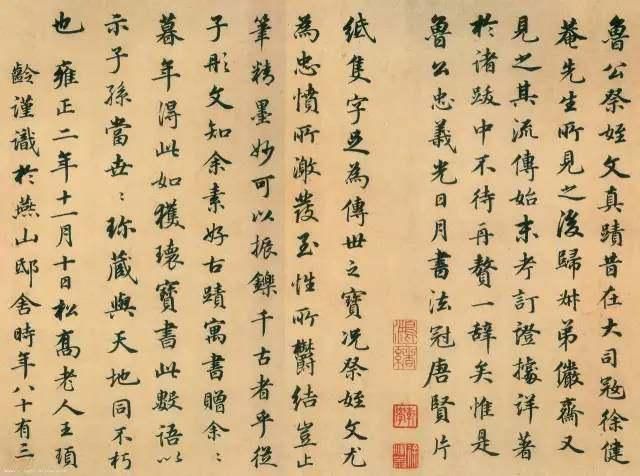 魯公祭姪文真蹟昔在大司寇徐健
菴先生所見之後歸姊弟儼齋又
見之其流傳始末考訂證據詳著
於諸跋中不待再贅一辭矣惟是
魯公忠義光日月書法冠唐賢片
紙隻字足為傳世之寶况祭姪文尤
為忠憤所激發至性所鬱結豈止
筆精墨妙可以振鑠千古者乎從
子彤文知余素好古蹟寓書贈余〻
暮年得此如獲瓌寶書此數語以
示子孫當世〻珍藏與天地同不朽
也 雍正二年十一月十日松喬老人王頊
齡謹識於燕山邸舍時年八十有三